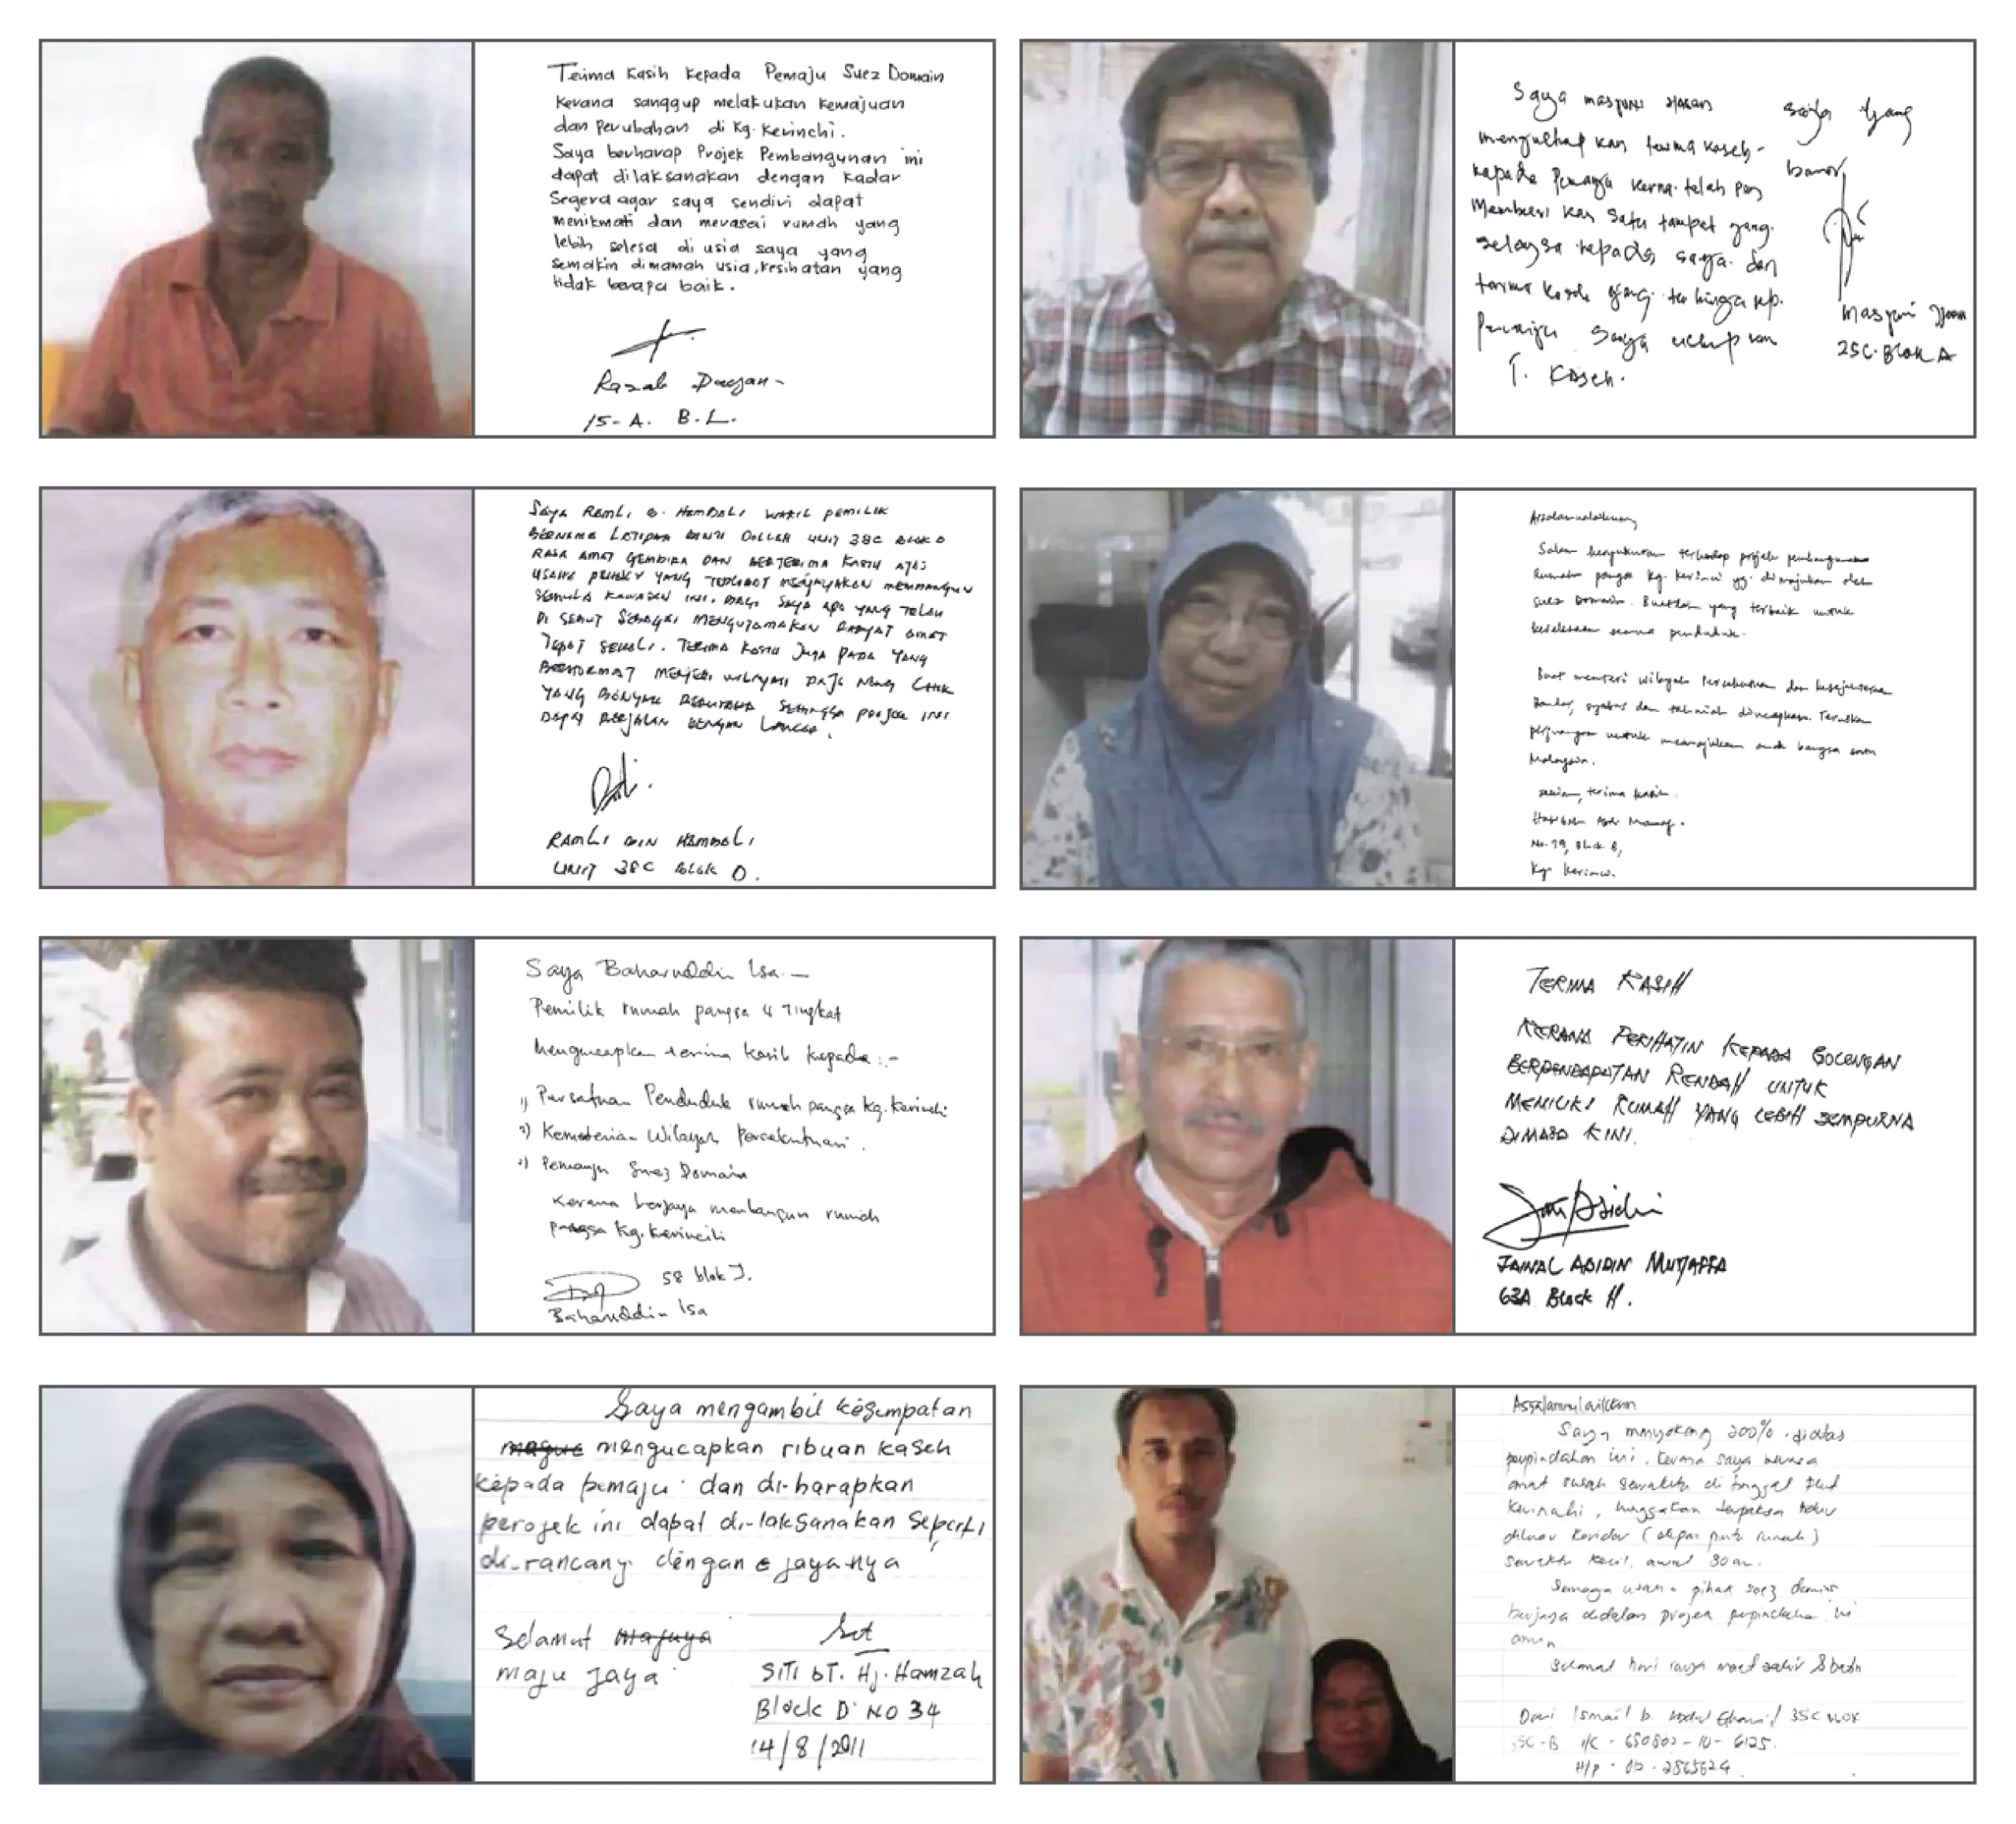 Terima kasih kepada Pemaju Suez Domain
kerana sanggup melakukan kemajuan
dan perubahan di Kg. Kerinchi.
Saya berharap Projek Pembangunan ini
dapat dilaksanakan dengan kadar
Segera agar saya sendiri dapat
menikmati dan merasai rumah yang
lebih selesa di usia saya yang
semakin dimamah usia, kesihatan yang
tidak berapa baik.
Razali
15-A. B.L.
Saya
mengucap kan
kepada Pemaju kerna telah
Memberi kan satu tampat yang
kepada saya dan
saya ucap kan
T. Kaseh.
Saya yang
benar
25C. Blok A
Saya RAMLI B. HAMBALI WAKIL PEMILIK
BERNAMA LATIPAH BINTI DOLLAH UNIT 38C BLOK D
RASA AMAT GEMBIRA DAN BERTERIMA KASIH ATAS
USAHA YANG TERLIBAT MEMBANGUN
SEMULA KAWASAN INI. BAGI SAYA APA YANG TELAH
DI SEBUT SEBAGAI MENGUTAMAKAN RAKYAT AMAT
TEPAT SEKALI. TERIMA KASIH JUGA PADA YANG
BERHORMAT MENTERI WILAYAH
YANG BANYAK BERUSAHA SEHINGGA PROJEK INI
DAPAT BERJALAN DENGAN LANCAR.
RAMLI BIN HAMBALI
UNIT 38C BLOK D.
Assalamualaikum
Salam kesyukuran terhadap projek pembangunan
Rumah pangsa Kg. Kerinci yg. dimajukan oleh
Suez Domain. Buatlah yang terbaik untuk
keselesaan semua penduduk.
Buat menteri Wilayah Persekutuan dan kesejahteraan
Bandar, syabas dan tahniah diucapkan. Teruskan
perjuangan untuk memajukan anak bangsa satu
Malaysia.
Sekian, terima kasih.
No. 79, Blok B,
Kg. Kerinci.
Saya Baharuddin Isa.—
Pemilik rumah pangsa 4 Tingkat
Mengucapkan terima kasih kepada:-
1) Persatuan Penduduk rumah pangsa Kg. Kerinchi
2) Kementerian Wilayah Persekutuan.
Pemaju Suez Domain
Kerana berjaya membangun rumah
pangsa Kg. Kerinchi
58 blok J.
Baharuddin Isa
TERIMA KASIH
KERANA PERIHATIN KEPADA GOLONGAN
BERPENDAPATAN RENDAH UNTUK
MEMILIKI RUMAH YANG LEBIH SEMPURNA
DIMASA KINI.
JAINAL ABIDIN
63A Block H.
Saya mengambil kesempatan
mengucapkan ribuan kaseh
kepada pemaju dan di-harapkan
perojek ini dapat di-laksanakan seperti
di-rancang dengan e jayanya
Selamat
maju jaya
SITI BT. Hj. Hamzah
Block D. NO 34
14/8/2011
Assalamulaikum
Saya menyokong 200% diatas
perpindahan ini. Kerana saya berasa
amat susah semakin di tinggal flat
Kerinchi, hinggakan terpaksa tidur
diluar koridor (depan pintu rumah)
Semoga usaha pihak Suez domain
berjaya didalam projek perpindahan ini
amin.
Selamat hari raya maaf zahir & batin
Dari Ismail b. 35C BLOK
35C-B I/C - 650802-10-6125.
H/P